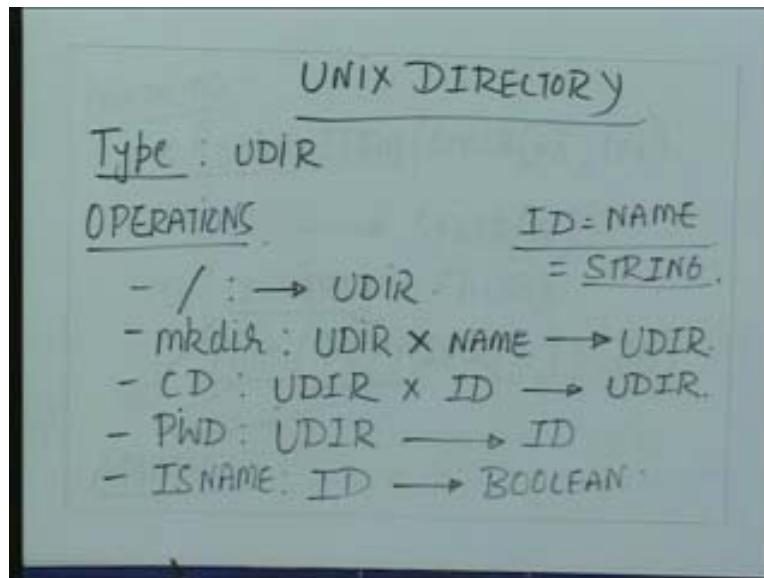 UNIX DIRECTORY
Type : UDIR
OPERATIONS
ID = NAME
= STRING.
- / : → UDIR
- mkdir : UDIR X NAME → UDIR.
- CD : UDIR X ID → UDIR.
- PWD : UDIR → ID
- ISNAME: ID → BOOLEAN.